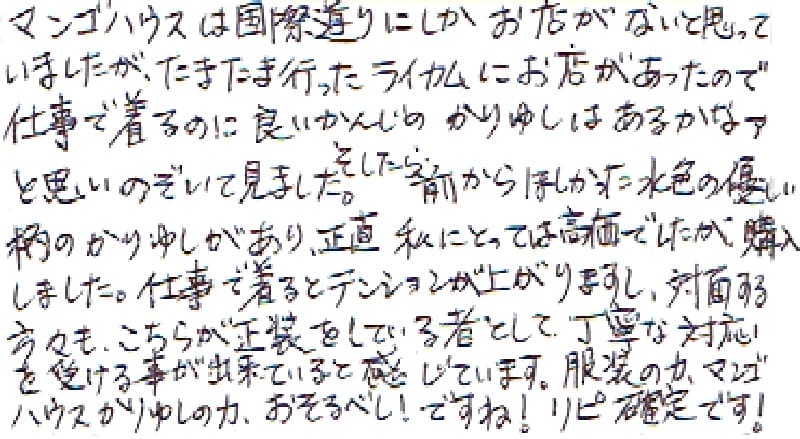 マンゴハウスは国際通りにしか お店がないと思って
いましたが、たまたま行った ライカムにお店があったので
仕事で着るのに良いかんじの かりゆしはあるかなァ
と思いのぞいて見ました。そしたら、前からほしかった水色の優しい
柄のかりゆしがあり、正直 私にとっては高価でしたが、購入
しました。仕事で着るとテンションが上がりますし、対面する
方々も、こちらが正装をしている者として、丁寧な対応
を受ける事が出来ていると感じています。服装の力、マンゴ
ハウスかりゆしの力、おそるべし！ですね！リピ確定です！